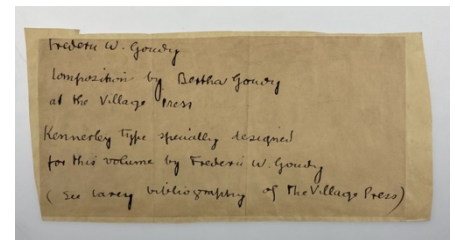 Frederic W. Goudy
Composition by Bertha Goudy
at the Village Press
Kennerley Type specially designed
for this volume by Frederic W. Goudy
(See Carey bibliography of The Village Press)